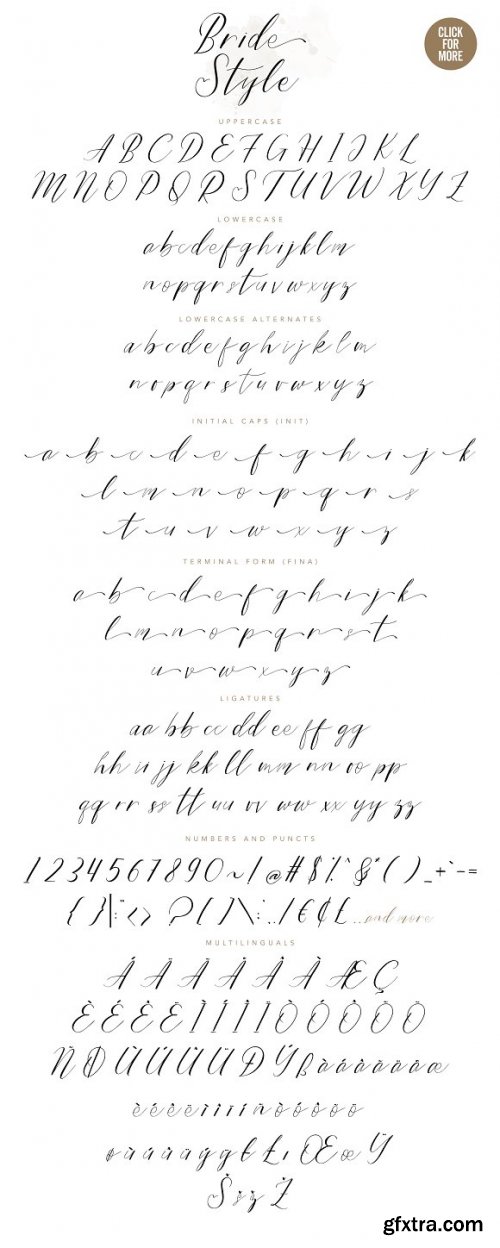 Bride
Style
CLICK
FOR
MORE
UPPERCASE
A B C D E F G H I J K L
M N O P Q R S T U V W X Y Z
LOWERCASE
a b c d e f g h i j k l m
n o p q r s t u v w x y z
LOWERCASE ALTERNATES
a b c d e f g h i j k l m
n o p q r s t u v w x y z
INITIAL CAPS (INIT)
a b c d e f g h i j k
l m n o p q r s
t u v w x y z
TERMINAL FORM (FINA)
a b c d e f g h i j k
l m n o p q r s t
u v w x y z
LIGATURES
aa bb cc dd ee ff gg
hh ii jj kk ll mm nn oo pp
qq rr ss tt uu vv ww xx yy zz
NUMBERS AND PUNCTS
1 2 3 4 5 6 7 8 9 0 ~ ! @ # $ % ^ & * ( ) _ + ` - =
{ } | : " < > ? [ ] \ ; ' , . / € ¢ £ ...and more
MULTILINGUALS
Á Â À Ä Å Ã Æ Ç
È É Ê Ë Ì Í Î Ï Ò Ó Ô Õ Ö
Ñ Ø Ù Ú Û Ü Ð Ý ß à á â ã ä å æ
è é ê ë ì í î ï ñ ò ó ô õ ö
ø ù ú û ü ý ÿ ł Ł ı Œ œ Ÿ
Š š ž Ž
gfxtra.com